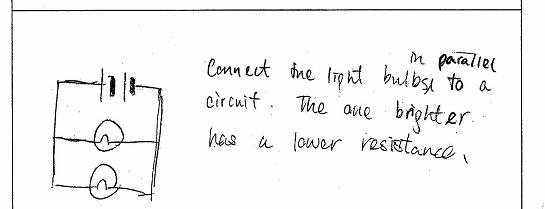 in parallel
Connect the light bulbs to a
circuit. The one brighter
has a lower resistance.